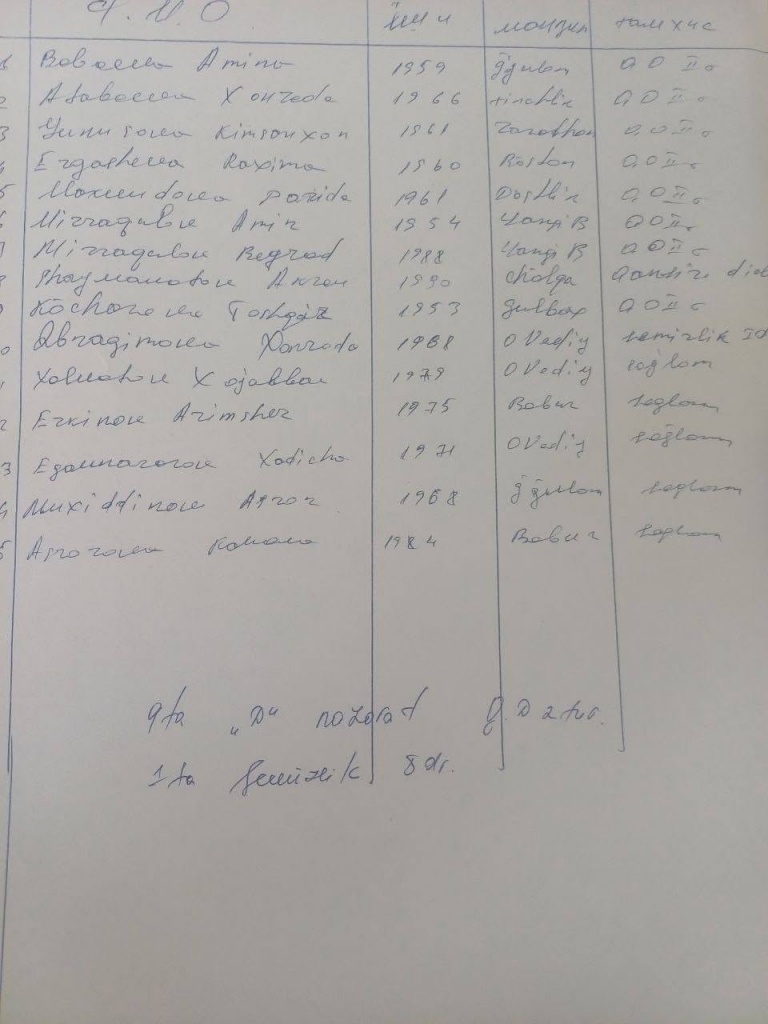 Ф. И. О йили манзил ташхис
1 Babaeva Amina 1959 g'gulom QD II
2 Atabaeva Xonzoda 1966 tinchlik QD II
3 Yunusova Kimsanxon 1961 QD II
4 Ergasheva Raxima 1960 Boston QD II
5 Maxmudova 1961 Dostlik QD II
6 Mirzaqulov Amin 1954 Yangi B QD II
7 Mirzaqulov Begzod 1988 Yangi B QD II
8 Shaymanatov Akram 1990 chalga
9 Kochorova Toshgoz 1953 gulbax QD II
10 Ibragimova Xonzoda 1968 O Vadiy semizlik ID
11 Xolmatov X 1979 O Vadiy soglom
12 Erkinov Azimsher 1975 Bobur soglom
13 Egamnazarova Xadicha 1971 O Vadiy soglom
14 Muxiddinov Asror 1968 g'gulom soglom
15 Asrorova 1984 Bobur soglom
9 ta "D" nazorat Q.D 2 tur.
1 ta Semizlik 8 dr.